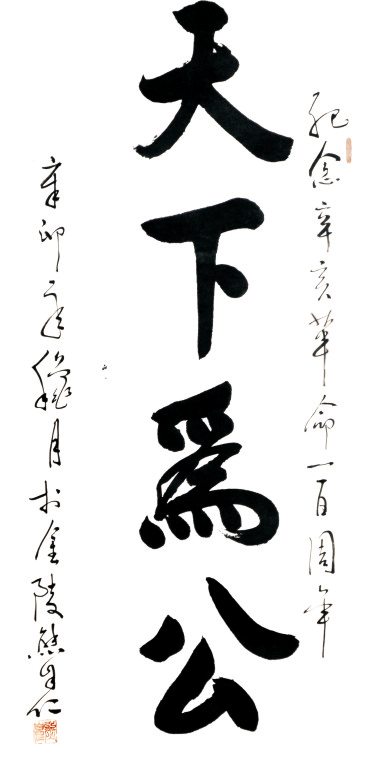 紀念辛亥革命一百周年
天下爲公
辛卯年穐月於金陵熊月仁